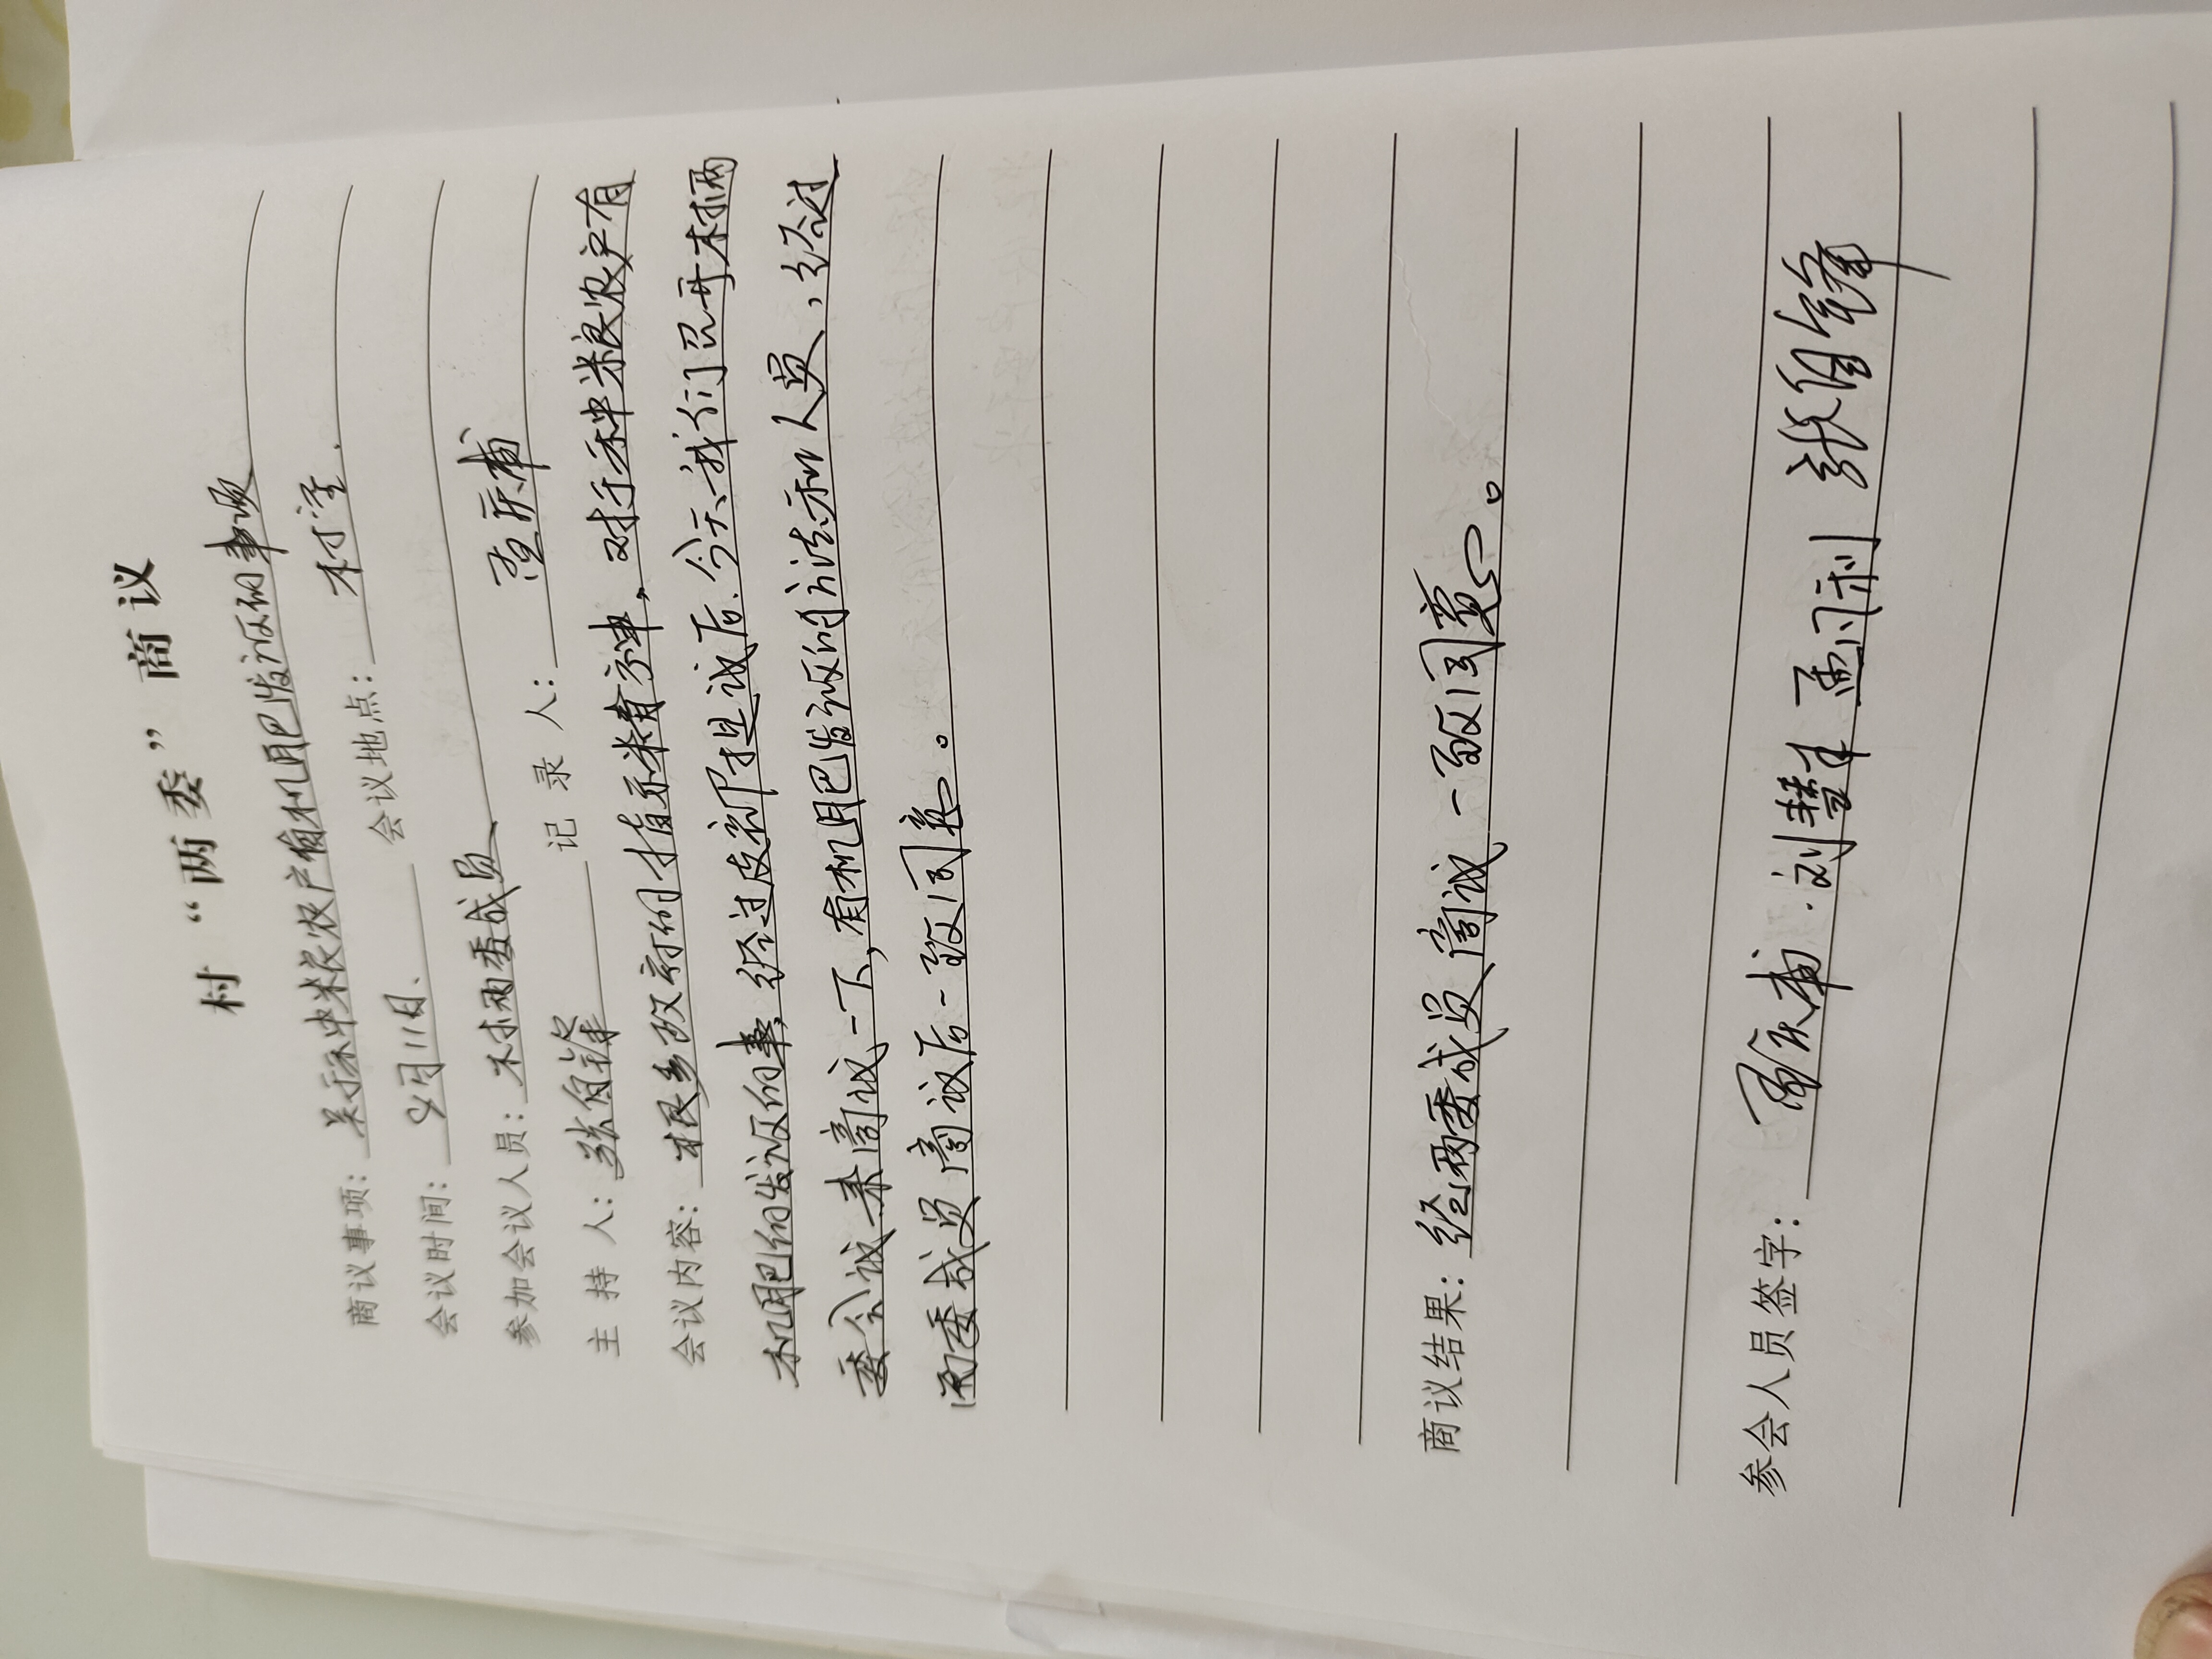 村“两委”商议
商议事项：关于种粮农户有机肥发放的事项
会议时间：8月11日. 会议地点：村室.
参加会议人员：村两委成员
主持人：张自锋 记录人：孟庆甫
会议内容：根乡政府的指示精神，对于种粮农户有
机肥的发放的事，经过支部提议后.今天我们召开村两
委会议来商议一下，有机肥发放的方法和人员，经过
两委成员商议后一致同意。
商议结果：经两委成员商议一致同意。
参会人员签字：孟庆甫.刘慧丰 孟凡利 张自锋